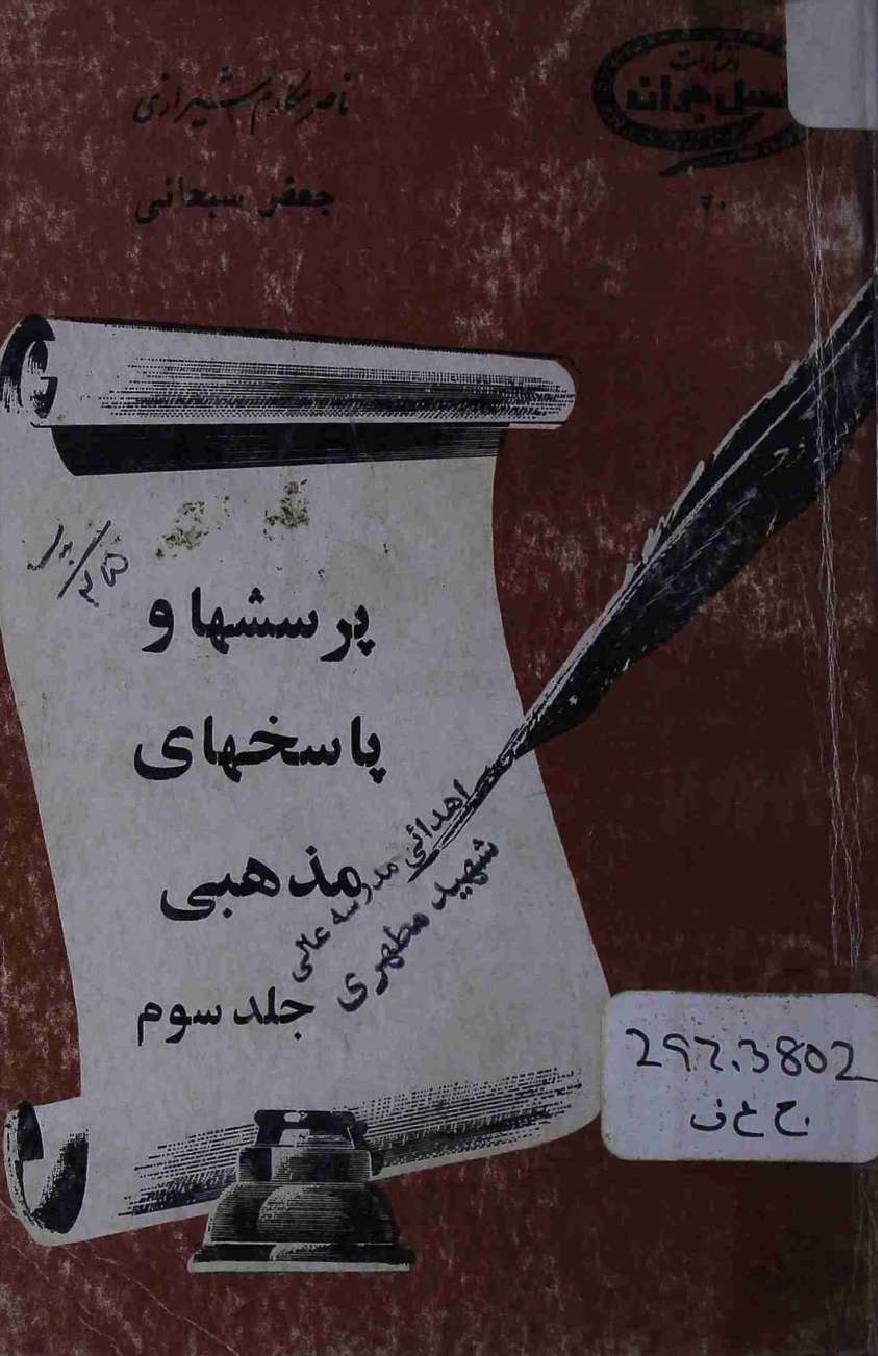 انتشارات
نسل جوان
۶۰
ناصر مکارم شیرازی
جعفر سبحانی
پرسشها و
پاسخهای
مذهبی
جلد سوم
اهدائی مدرسه عالی
شهید مطهری
297.3802
ج ع ف